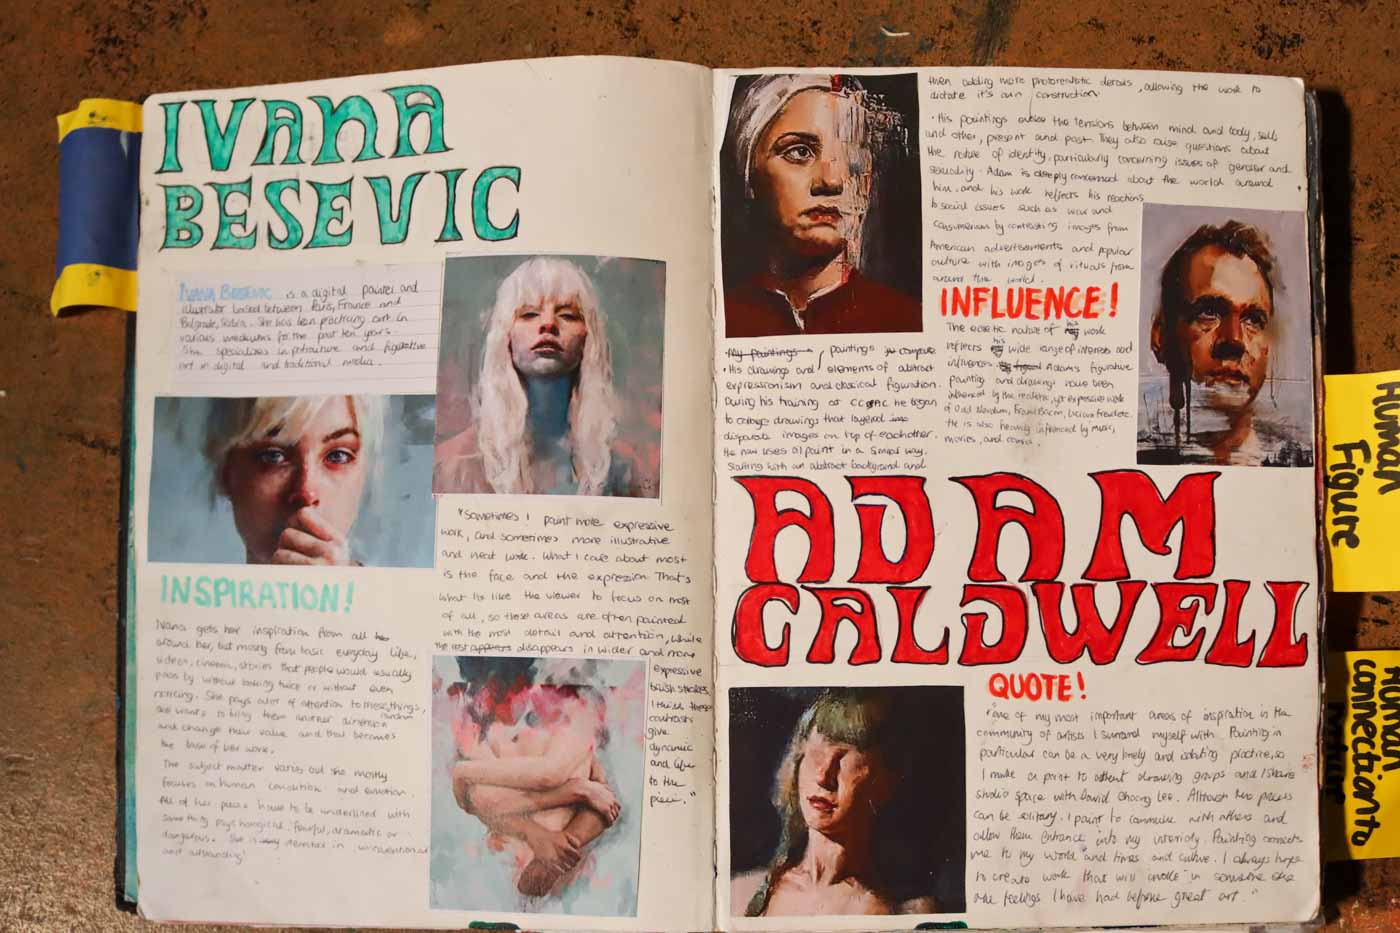 IVANA
BESEVIC
IVANA BESEVIC is a digital painter and
illustrator based between Paris, France and
Belgrade, Serbia. She has been practicing art in
various mediums for the past ten years.
She specializes in portraiture and figurative
art in digital and traditional media.
"Sometimes I paint more expressive
work, and sometimes more illustrative
and neat work. What I care about most
is the face and the expression. That's
what I'd like the viewer to focus on most
of all, so those areas are often painted
with the most detail and attention, while
the rest disappears in wider and more
expressive
brush strokes.
I think these
contrasts
give
dynamic
and life
to the
piece."
INSPIRATION!
Ivana gets her inspiration from all
around her, but mostly from basic everyday life,
videos, cinema, stories that people would usually
pass by without looking twice or without even
noticing. She pays a lot of attention to these things,
and wants to bring them another dimension
and change their value and that becomes
the base of her work.
The subject matter varies but she mostly
focuses on human condition and emotion.
All of her pieces have to be underlined with
something psychological, fearful, dramatic or
dangerous. She is interested in unconventional
and outstanding!
then adding more photorealistic details, allowing the work to
dictate it's own construction.
· His paintings evoke the tensions between mind and body, self
and other, present and past. They also raise questions about
the nature of identity, particularly concerning issues of gender and
sexuality. Adam is deeply concerned about the world around
him, and his work reflects his reactions
to social issues such as war and
consumerism by contrasting images from
American advertisements and popular
culture with images of rituals from
around the world.
INFLUENCE!
The eclectic nature of his work
reflects his wide range of interests and
influences. Adam's figurative
painting and drawings have been
influenced by the realistic, yet expressive work
of Odd Nerdrum, Francis Bacon, Lucian Freud etc.
He is also heavily influenced by music,
movies, and comics.
My paintings paintings
· His drawings and elements of abstract
expressionism and classical figuration.
During his training at CCAC he began
to collage drawings that layered
disparate images on top of each other.
He now uses oil paint in a similar way,
starting with an abstract background and
ADAM
CALDWELL
QUOTE!
"one of my most important areas of inspiration is the
community of artists I surround myself with. Painting in
particular can be a very lonely and isolating practice, so
I make a point to attend drawing groups and I share
studio space with David Choong Lee. Although two pieces
can be solitary. I paint to commune with others and
allow them entrance into my interiority. Painting connects
me to my world and times and culture. I always hope
to create work that will evoke in someone else
the feelings I have had before great art."
Human
Figure
Human
connection to